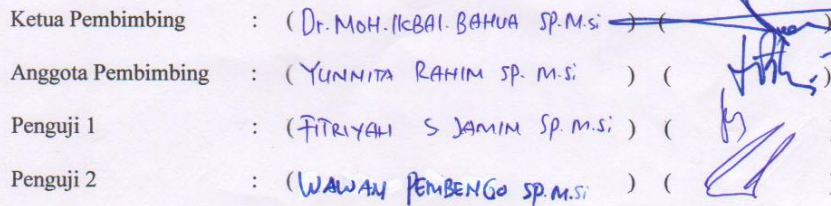 Ketua Pembimbing : ( Dr. MOH. IKBAL. BAHUA SP. M.si ) ( )
Anggota Pembimbing : ( YUNNITA RAHIM SP. M.si ) ( )
Penguji 1 : ( FITRIYAH S JAMIN SP. M.si ) (
Penguji 2 : ( WAWAN PEMBENGO SP. M.Si ) (